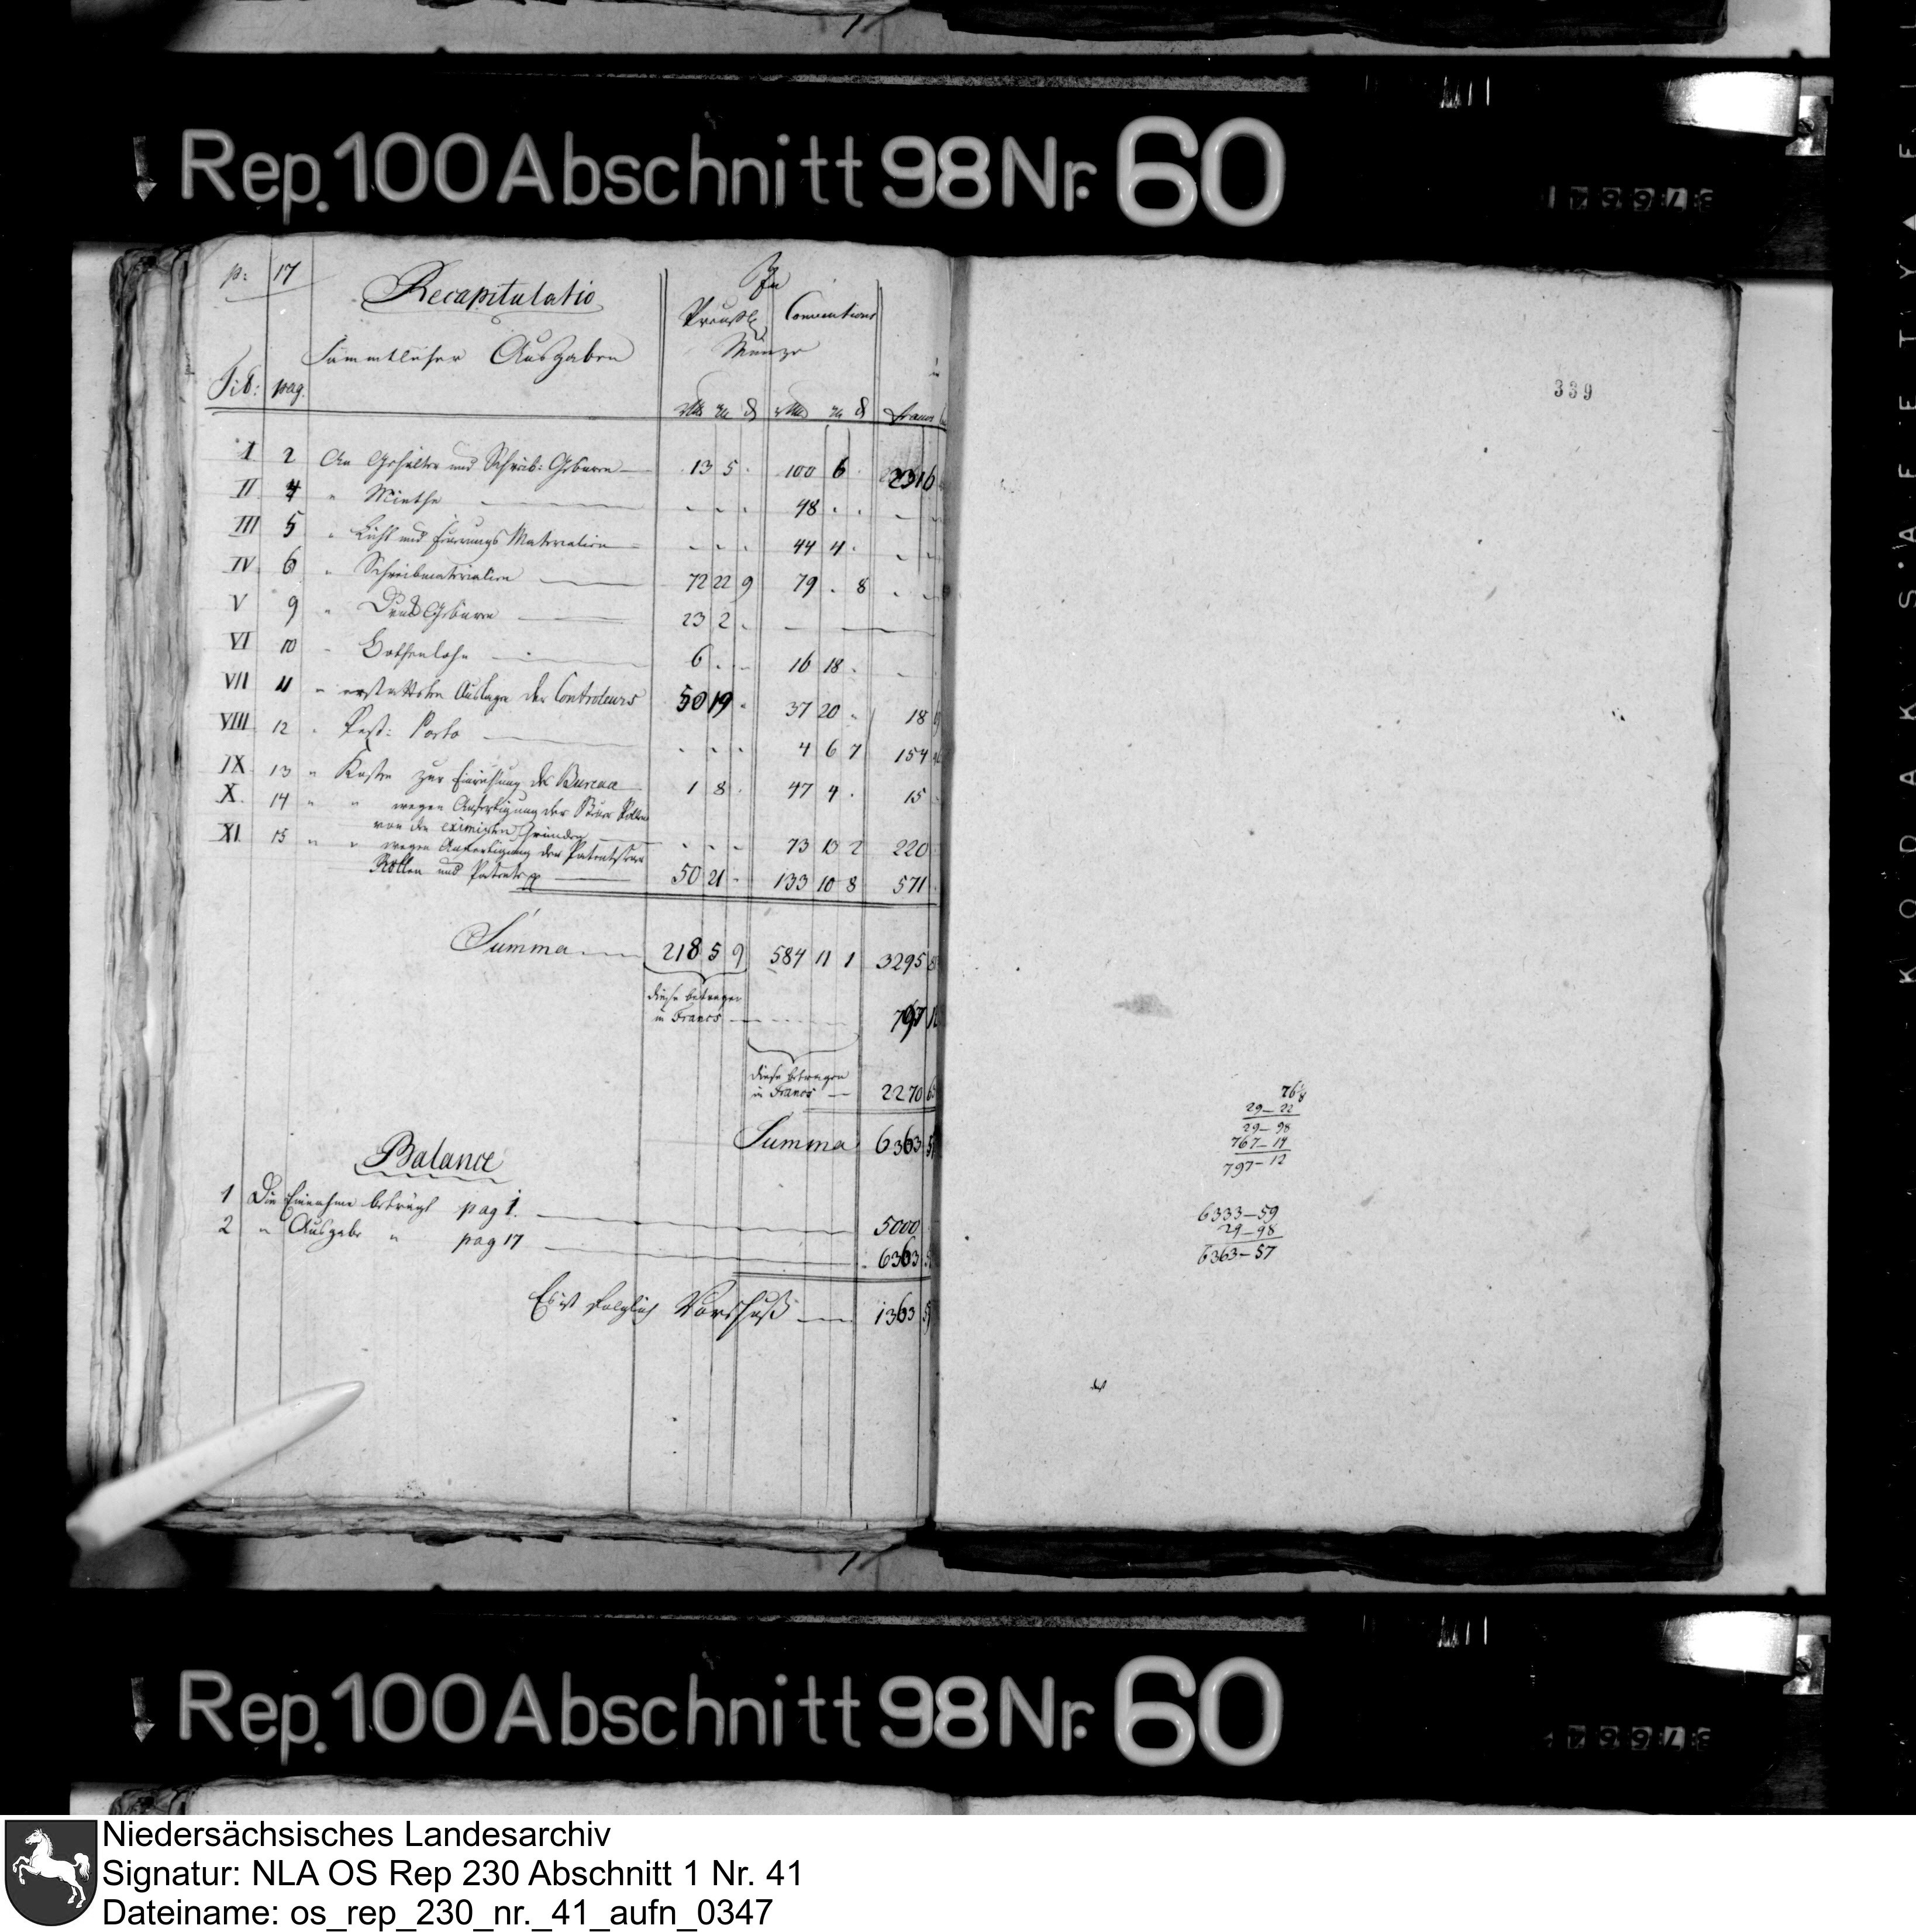 Rep. 100 Abschnitt 98 Nr. 60
p: 17
Recapitulatio
In
Preußl. Conventions
Sämmtlicher Ausgaben
Münze
Tit: pag.
Francs
I 2 An Gehalter und Schreib: Gebüren 13 5 . 100 6 . 2316
II 4 " Miethe . . . 48 . .
III 5 " Licht und Feurungs Materialien . . . 44 4 .
IV 6 " Schreibmaterialien 72 22 9 79 . 8
V 9 " Druck Gebüren 23 2 .
VI 10 " Bothenlohn 6 . . 16 18 .
VII 11 " erstatteten Auslagen der Controleurs 50 19 . 37 20 . 18
VIII 12 " Post: Porto . . . 4 6 7 154
IX 13 " Kosten zur Einrichtung des Bureau 1 8 . 47 4 . 15
X. 14 " " wegen Anfertigung der Steuer Rollen
von den eximirten Gründen . . . 73 13 2 220
XI. 15 " " wegen Anfertigung der Patentsteuer
Rollen und Patente 50 21 . 133 10 8 571
Summa 218 5 9 584 11 1 3295
diese betragen
in Francs 797
diese betragen
in Francs 2270
Summa 6363
Balance
1 Die Einnahme beträgt pag 1. 5000
2 " Ausgabe " pag 17 6363
Es ist folglich Vorschuß 1363
339
29–22
29–98
767–14
797–12
6333–59
29–98
6363–57
Rep. 100 Abschnitt 98 Nr. 60
KODAK SAFETY
Niedersächsisches Landesarchiv
Signatur: NLA OS Rep 230 Abschnitt 1 Nr. 41
Dateiname: os_rep_230_nr._41_aufn_0347